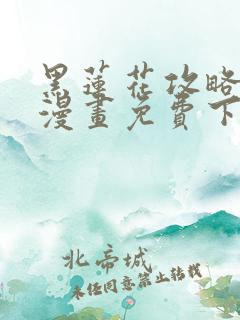 黑蓮花攻略
漫畫免費下
北帝城
未经同意禁止转载